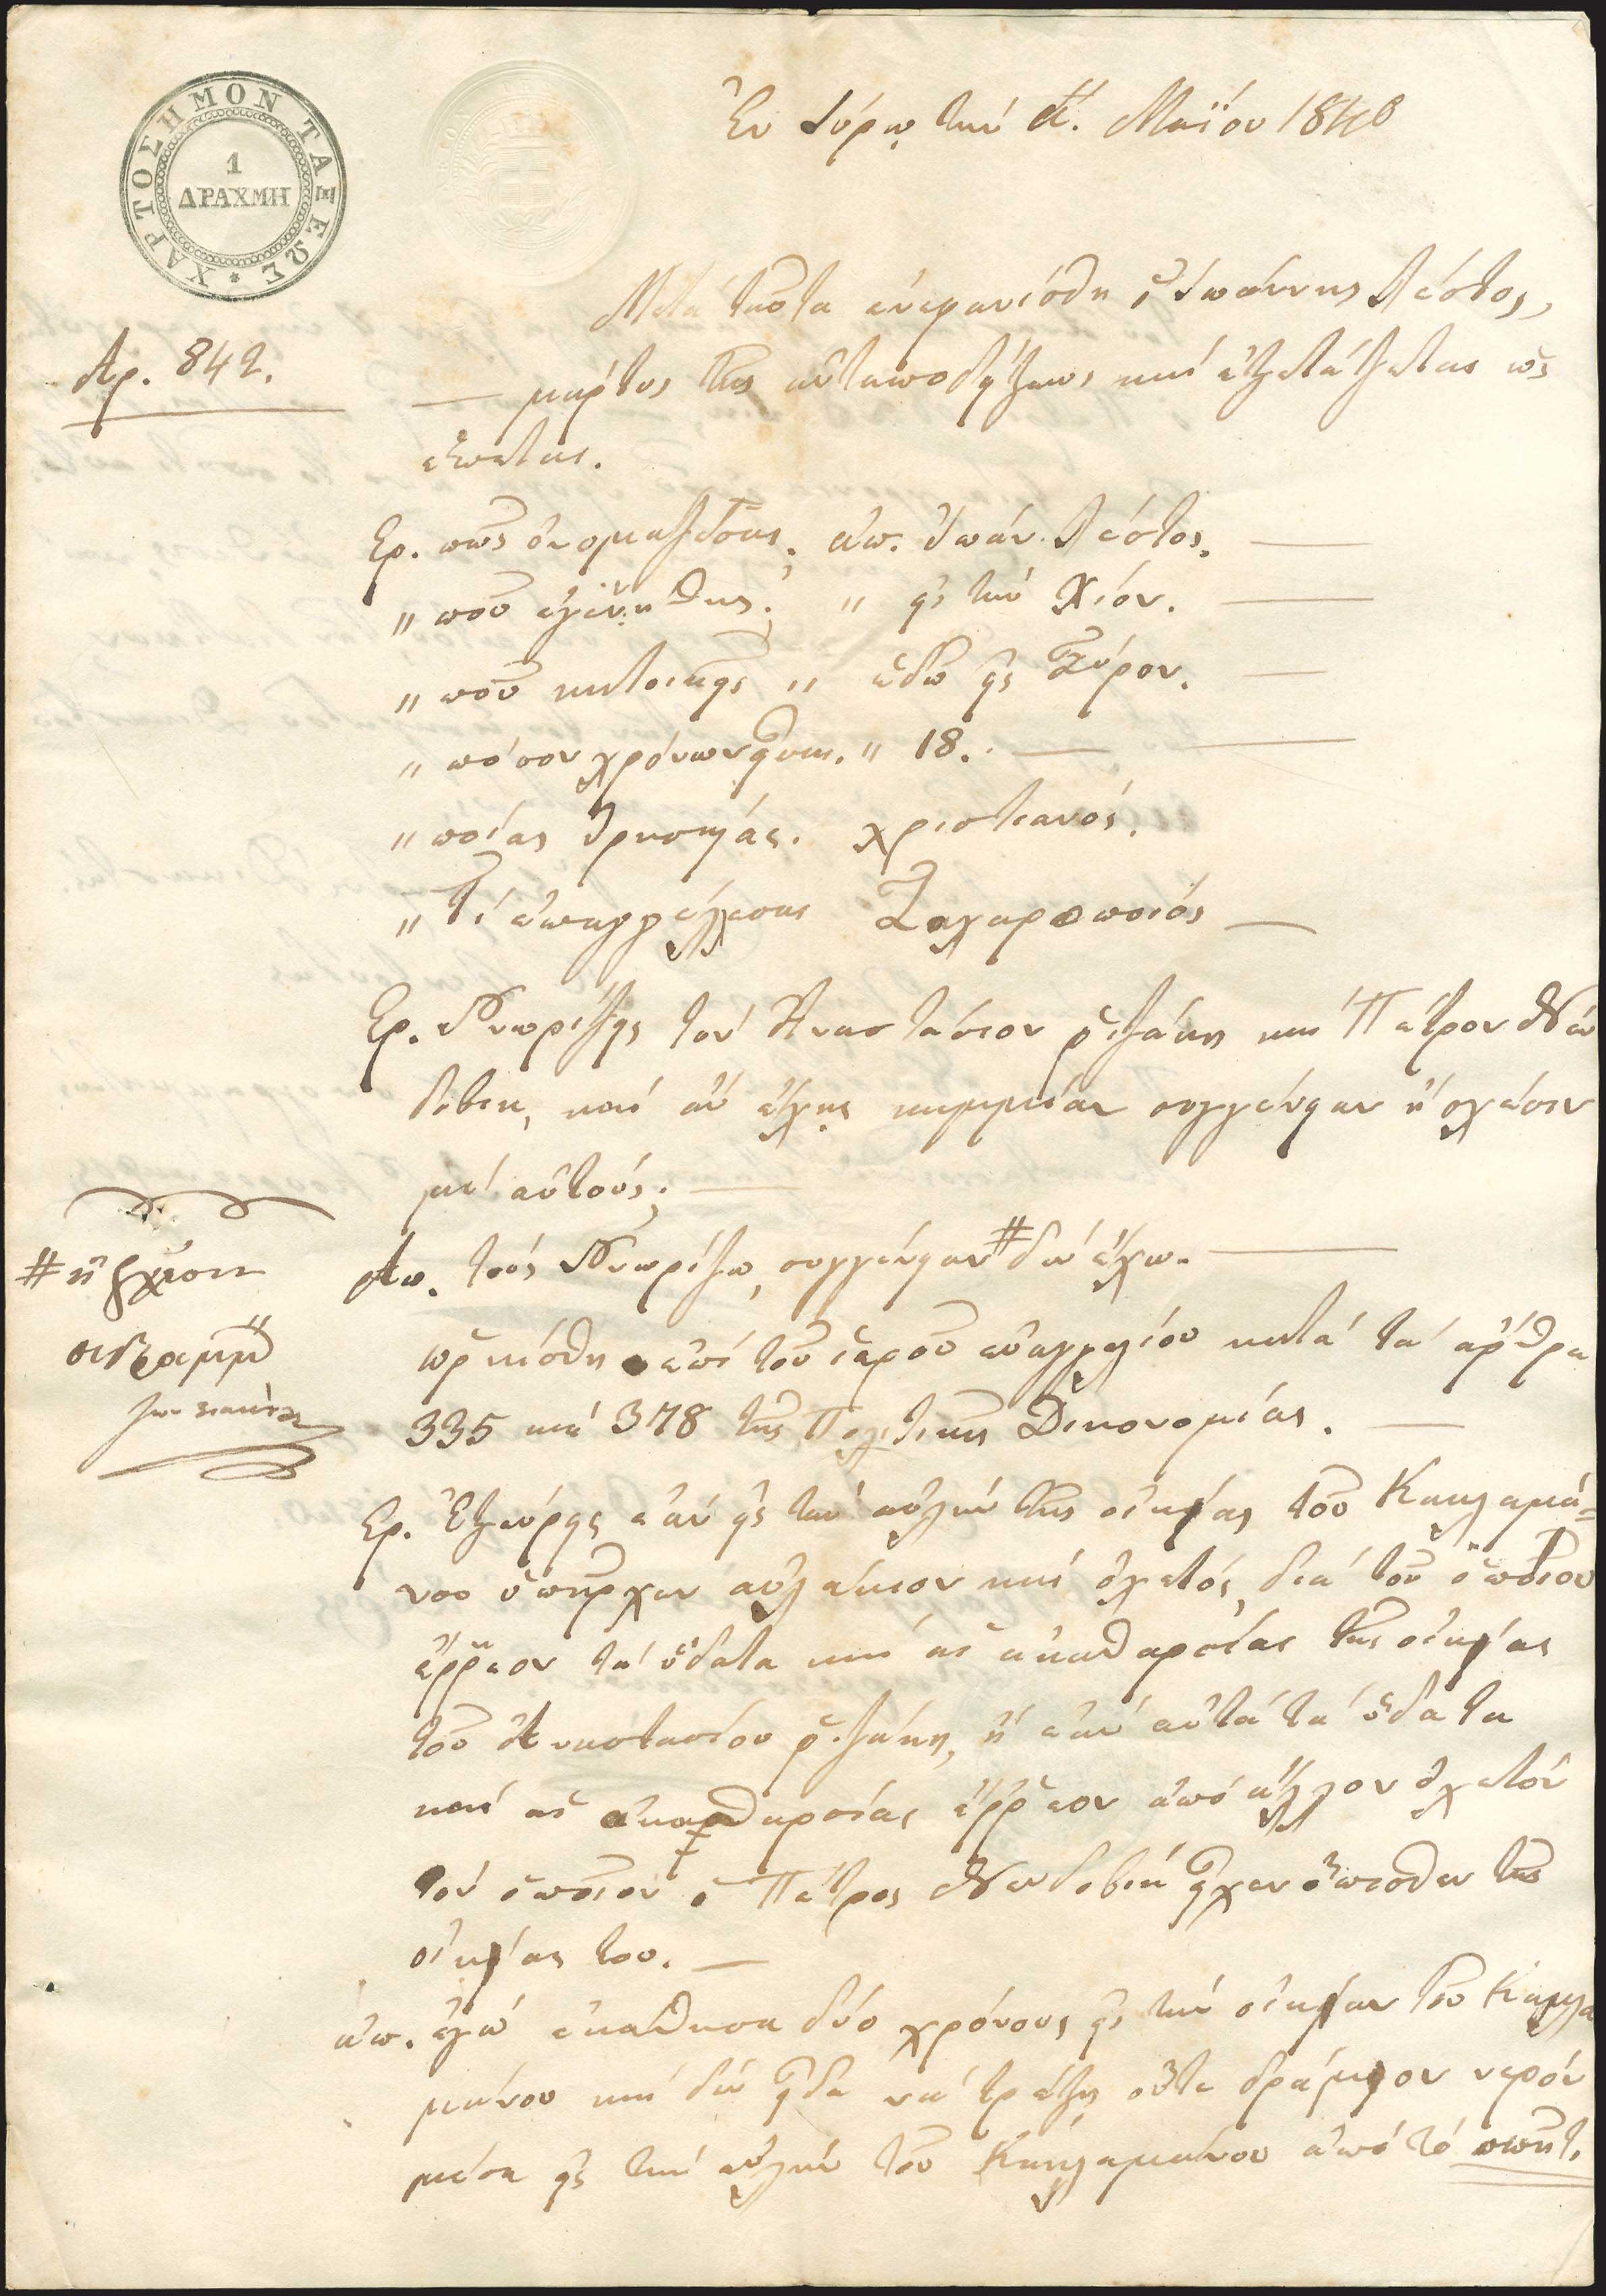 ΧΑΡΤΟΣΗΜΟΝ ΤΑΞΕΩΣ
1
ΔΡΑΧΜΗ
Ἐν Σύρῳ τὴν α΄. Μαΐου 1840
Αρ. 842.
Μετὰ ταῦτα ἐνεφανίσθη ὁ Ἰωάννης Λέστος,
μάρτυς τῆς ἀνταποδείξεως καὶ ἐξετάζεται ὡς
ἕπεται.
Ερ. πῶς ὀνομάζεσαι; ἀπ. Ἰωάν. Λέστος.
" ποῦ ἐγεννήθης; " εἰς τὴν Χίον.
" ποῦ κατοικεῖς " ἐδῶ εἰς Σύρον.
" πόσον χρόνων εἶσαι. " 18.
" ποίας θρησκείας. χριστιανός.
" Τί ἐπαγγέλλεσαι Ζαχαροποιός
Ερ. Γνωρίζεις τὸν Ἀναστάσιον Ῥιζάκη καὶ Πέτρον
καὶ ἂν ἔχῃς καμμίαν συγγένειαν ἢ σχέσιν
μὲ αὐτούς;
Απ. τοὺς Γνωρίζω, συγγένειαν # δὲν ἔχω.
# ἢ σχέσιν
ὡρκίσθη ἐπὶ τοῦ ἱεροῦ εὐαγγελίου κατὰ τὰ ἄρθρα
335 καὶ 378 τῆς Πολιτικῆς Δικονομίας.
Ερ. Ἐξεύρεις ἐὰν εἰς τὴν αὐλὴν τῆς οἰκίας τοῦ Καλαμά=
νου ὑπῆρχεν αὐλάκιον καὶ ὀχετός, διὰ τοῦ ὁποίου
ἔῤῥεον τὰ ὕδατα καὶ αἱ ἀκαθαρσίαι τῆς οἰκίας
τοῦ Ἀναστασίου Ῥιζάκη, ἢ ἐὰν αὐτὰ τὰ ὕδατα
καὶ αἱ ἀκαθαρσίαι ἔῤῥεον ἀπὸ ἄλλον ὀχετὸν
τὸν ὁποῖον ὁ Πέτρος εἶχεν ὄπισθεν τῆς
οἰκίας του.
ἀπ. ἐγὼ ἐκάθησα δύο χρόνους εἰς τὴν οἰκίαν τοῦ
μάνου καὶ δὲν εἶδα νὰ τρέξῃ οὔτε δράμιον νερόν
μέσα εἰς τὴν αὐλὴν τοῦ Καλαμάνου ἀπὸ τὸ σπῆτ.